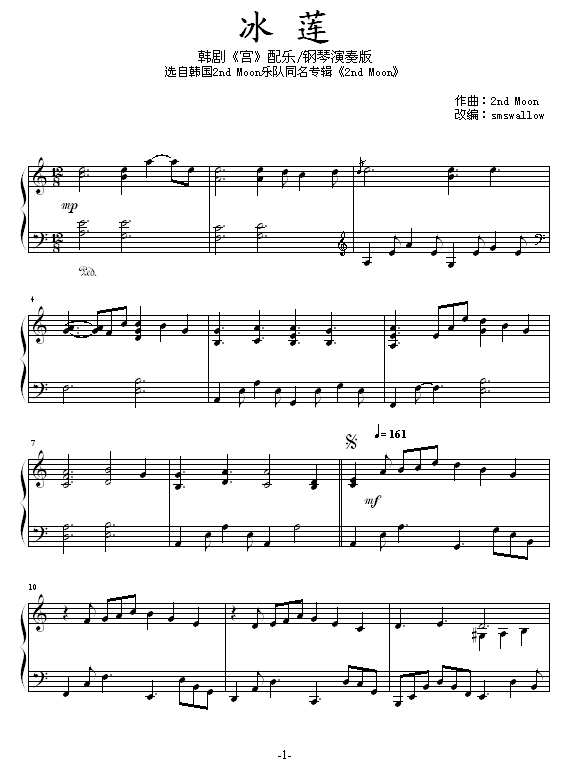 冰 莲
韩剧《宫》配乐/钢琴演奏版
选自韩国2nd Moon乐队同名专辑《2nd Moon》
作曲：2nd Moon
改编：smswallow
12 8
mp
12 8
Ped.
4
7
= 161
mf
10
-1-